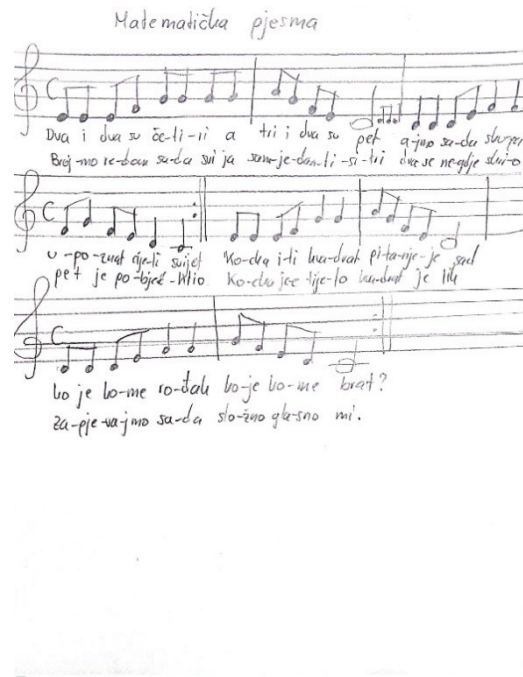 Matematička pjesma
Dva i dva su če-ti-ri a tri i dva su pet a-jmo sa-da sku-pa
Broj-mo re-dom sa-da svi ja sam je-dan-ti-si-tri dva se negdje skri-o
u-po-znat cije-li svijet Ko-cka i-li kva-drat pi-ta-nje-je sad
pet je po-bjeć -htio Ko-cka je tije-lo kva-drat je lik
ko je ko-me ro-đak ko-je ko-me brat?
Za-pje-va-jmo sa-da slo-žno gla-sno mi.